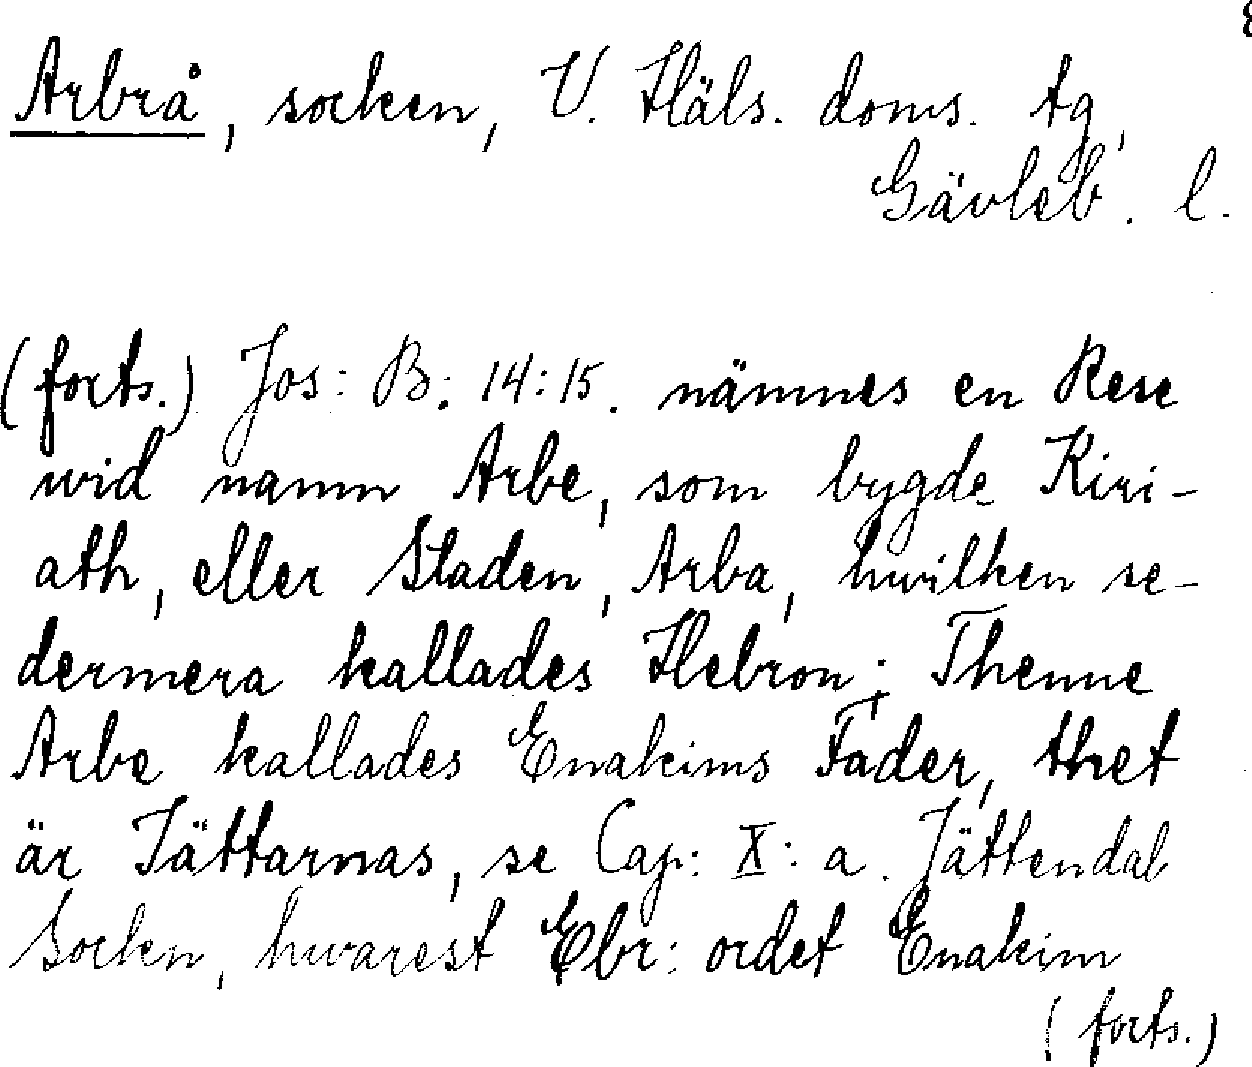 Arbrå, socken, V. Häls. doms. tg,
Gävleb. l.
(forts.) Jos: B: 14:15. nämnes en Rese
wid namn Arbe, som bygde Kiri-
ath, eller Staden, Arba, hwilken se-
dermera kallades Hebron; Thenne
Arbe kallades Enakims Fader, thet
är Jättarnas, se Cap: X: a. Jättendal
Socken, hwarest Ebr: ordet Enakim
(forts.)